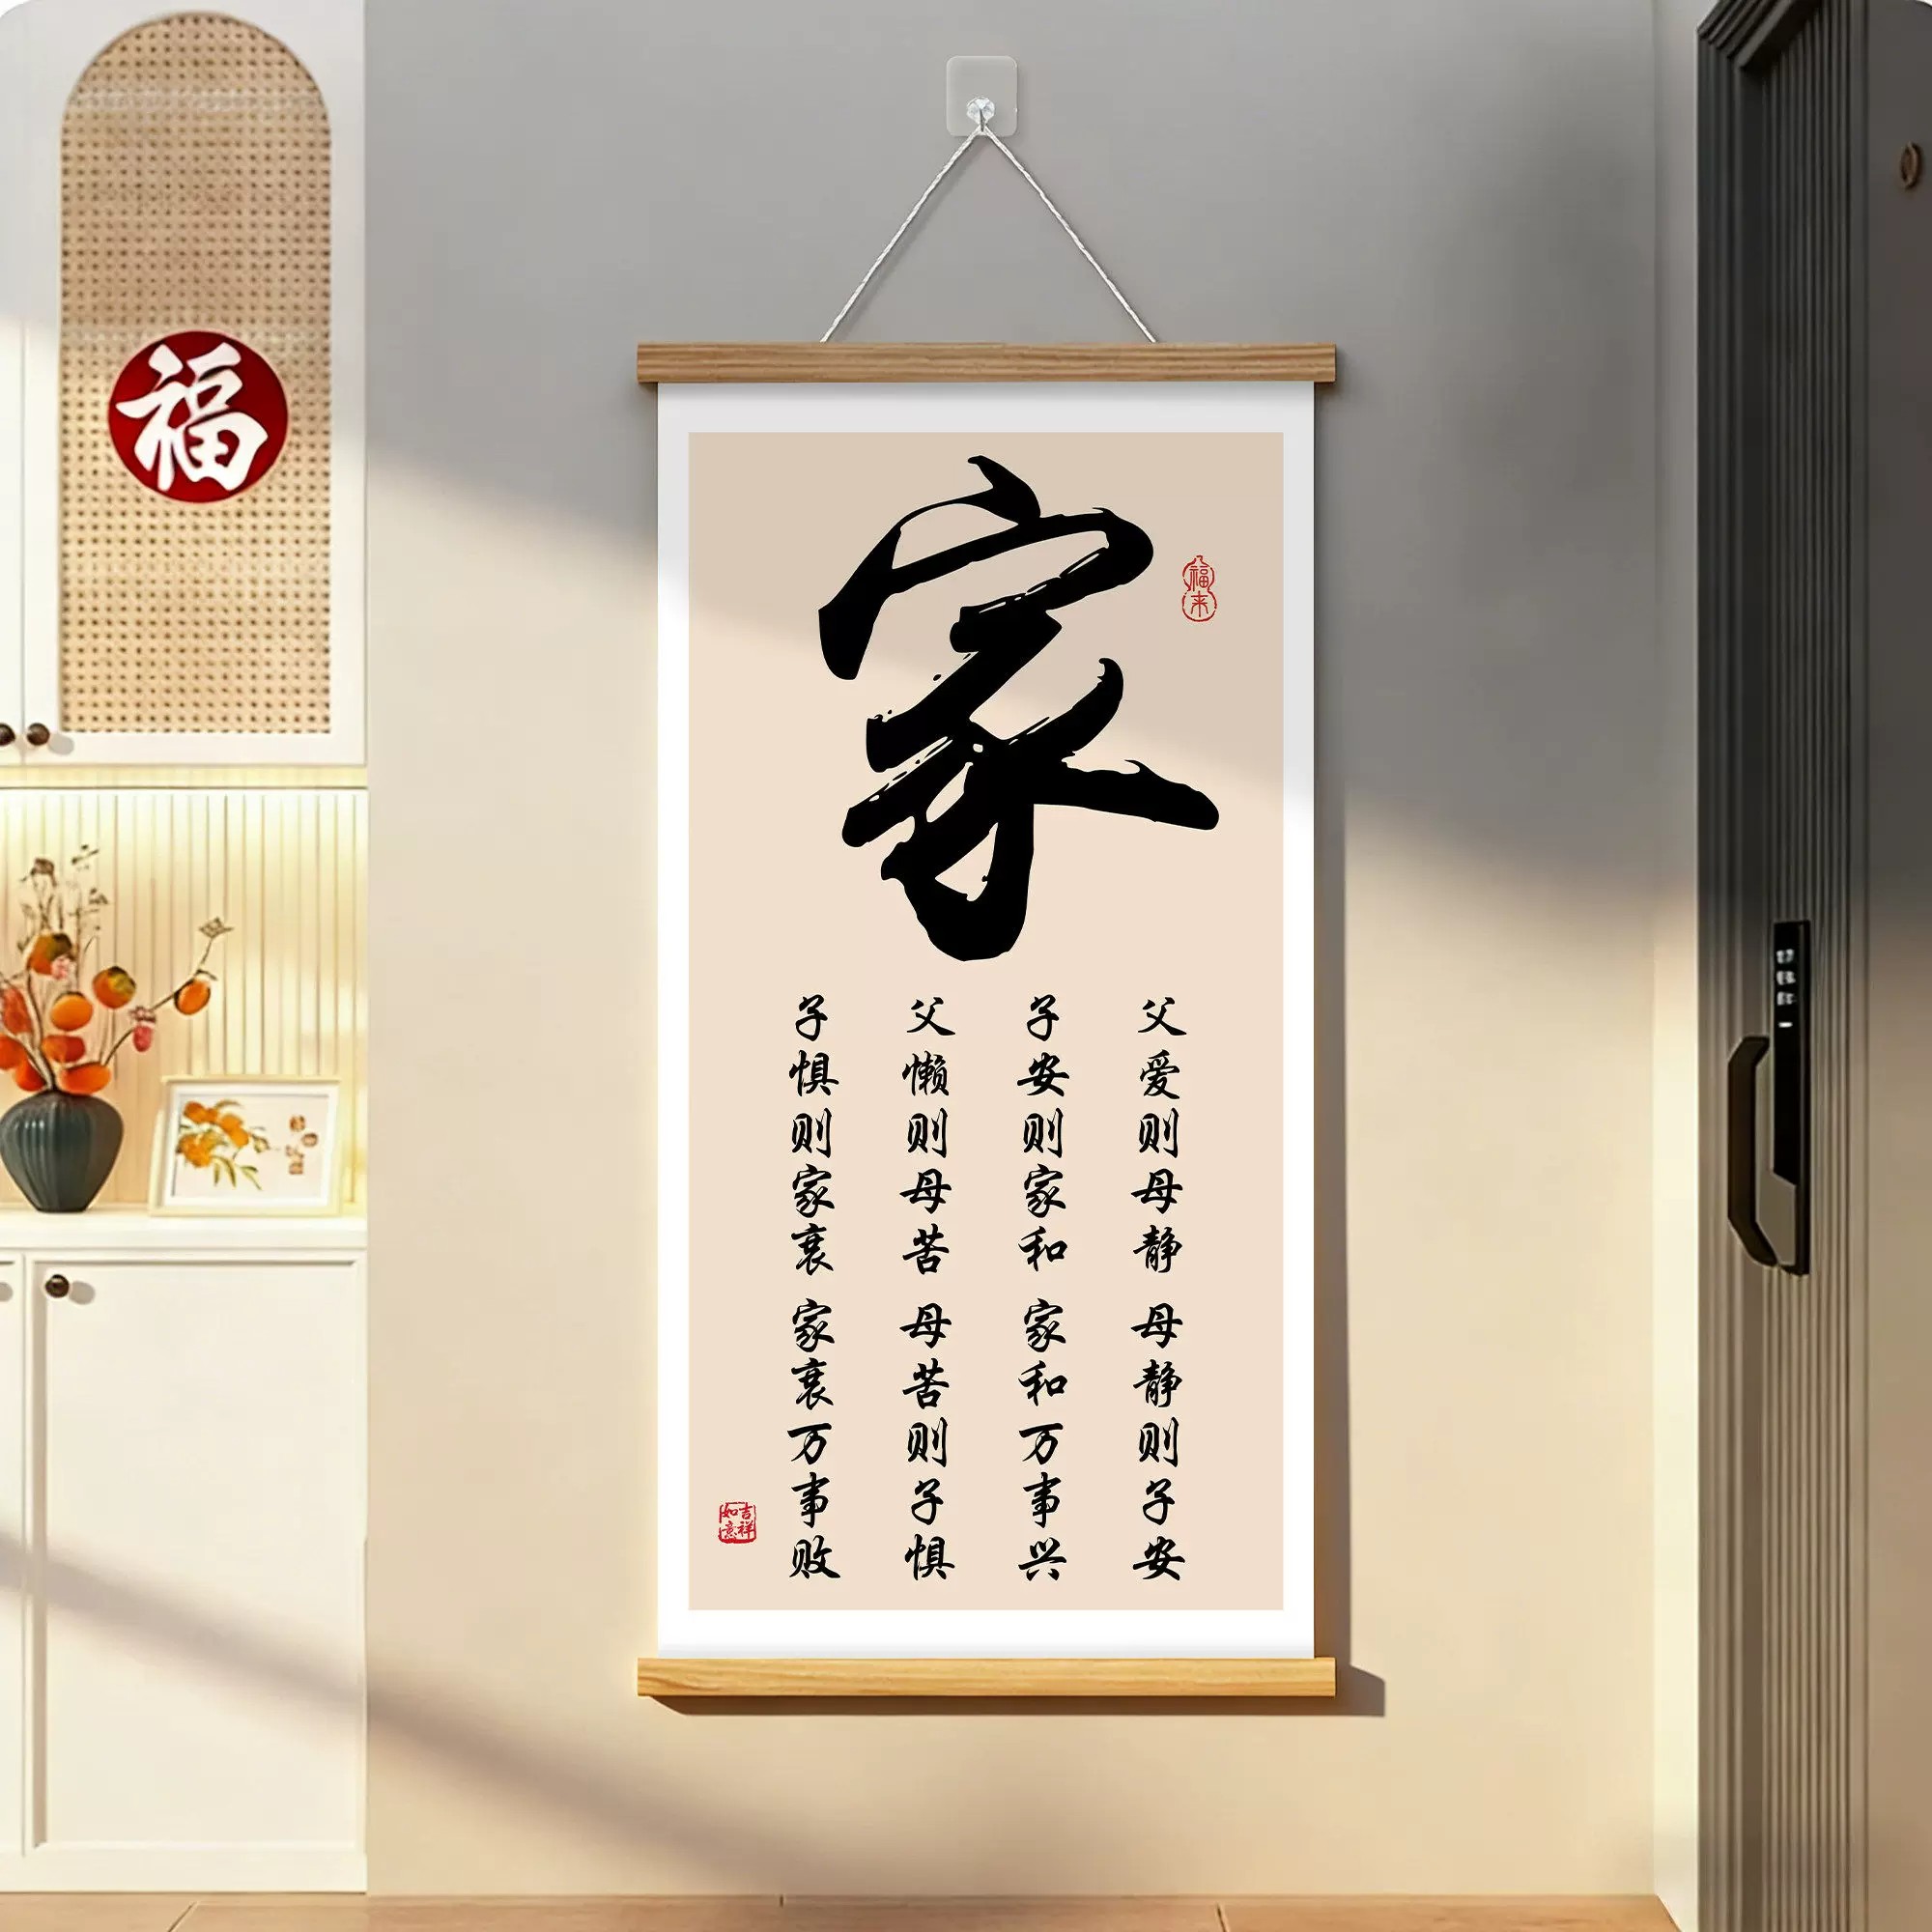 福
家
福来
父爱则母静 母静则子安
子安则家和 家和万事兴
父懒则母苦 母苦则子惧
子惧则家衰 家衰万事败
吉祥
如意